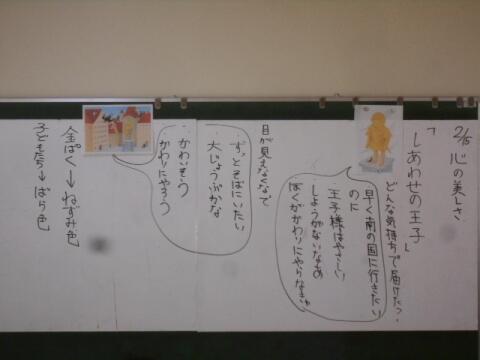 2/15 心の美しさ
「しあわせの王子」
どんな気持ちで届けた?
早く南の国に行きたい
のに
王子様はやさしい
しょうがないなあ
ぼくがかわりにやらなきゃ
目が見えなくなって
・ずっとそばにいたい
・大じょうぶかな
・かわいそう
かわりにやろう
金ぱく→ねずみ色
子どもたち→ばら色